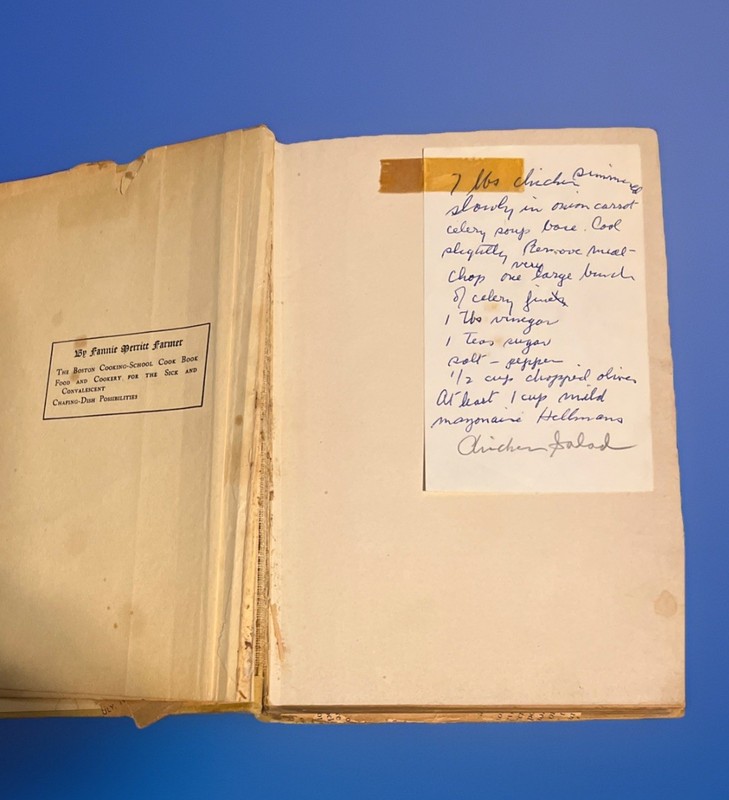 By Fannie Merritt Farmer
The Boston Cooking-School Cook Book
Food and Cookery for the Sick and
Convalescent
Chafing-Dish Possibilities
7 lbs chicken simmered
slowly in onion carrot
celery soup base. Cool
slightly Remove meat-
chop one large bunch
of celery very finely
1 Tbs vinegar
1 Teas sugar
salt - pepper
1/2 cup chopped olives
At least 1 cup mild
mayonaise Hellmans
Chicken Salad